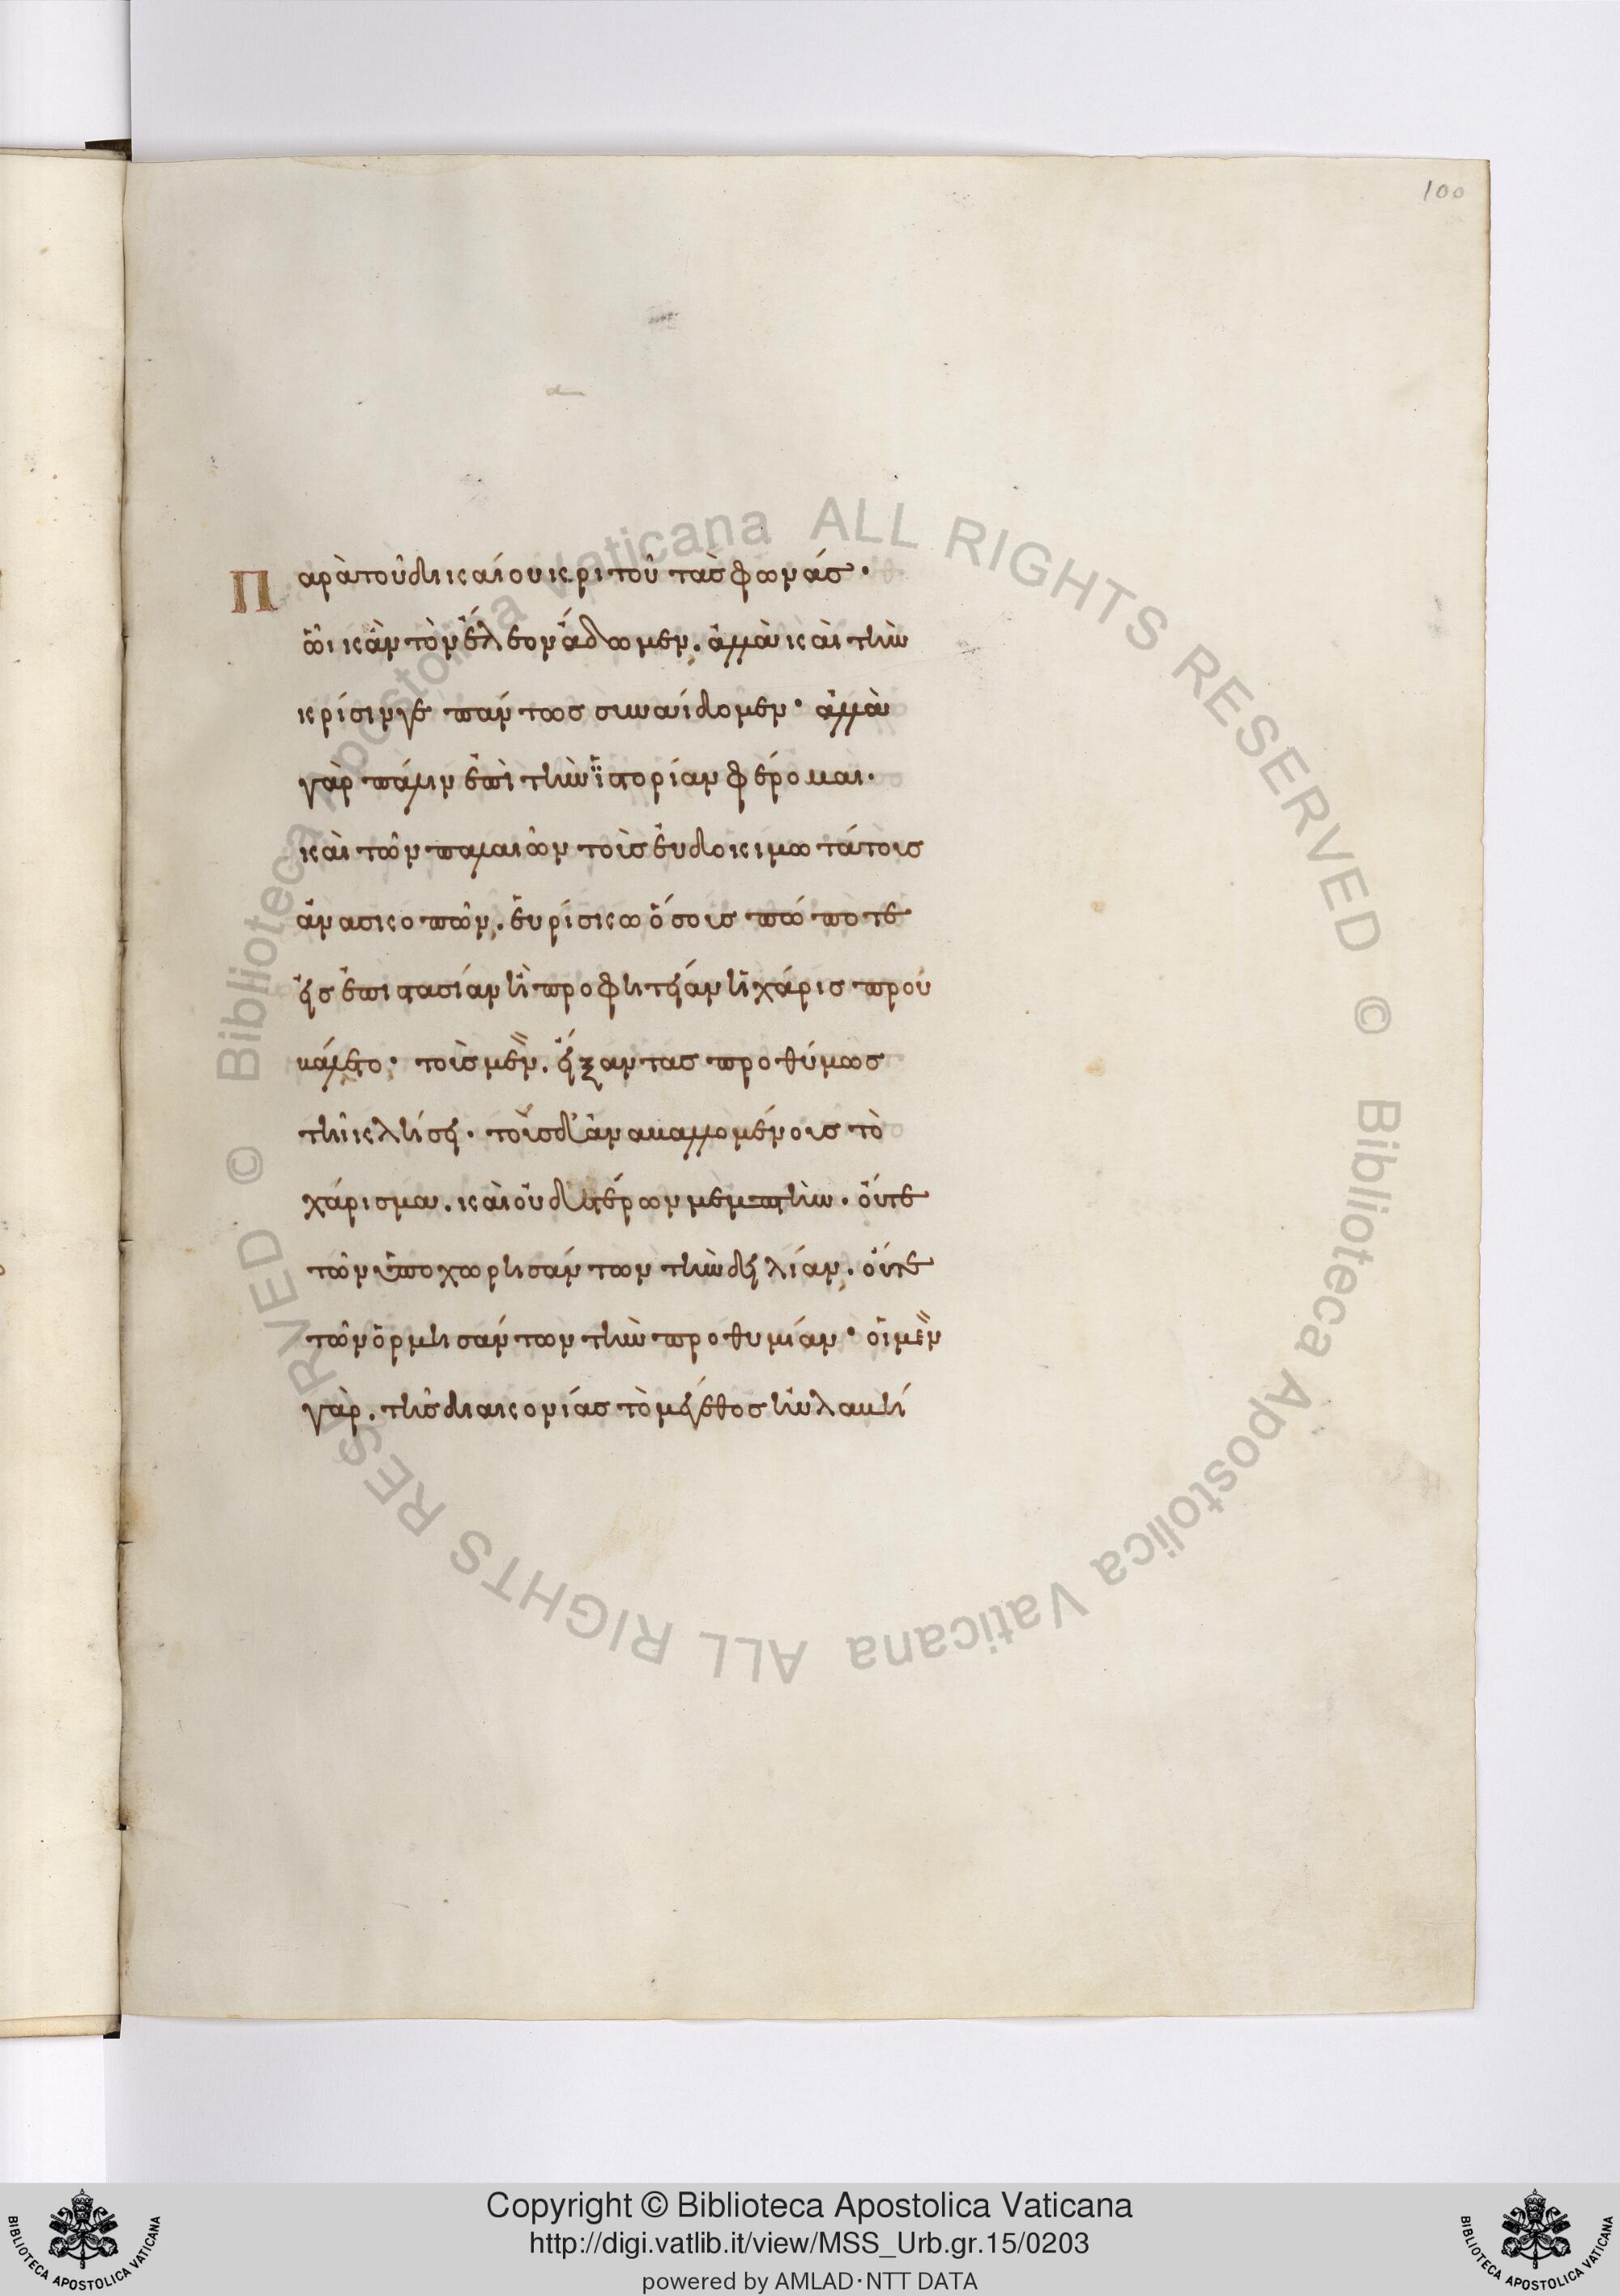 100
Παρὰ τοῦ δικαίου κριτοῦ τὰς φωνάς·
ὧι κἂν τὸν ἔλεον ἄδωμεν. ἀλλὰ καὶ τὴν
κρίσιν γε πάντως συναίδομεν· ἀλλὰ
γὰρ πάλιν ἐπὶ τὴν ἱστορίαν φέρομαι.
καὶ τῶν παλαιῶν τοῖς εὐδοκιμωτάτοις
ἀνασκοπῶν. εὑρίσκω ὅσοις πώποτε
εἰς ἐπιστασίαν ἢ προφητείαν ἡ χάρις προὐ
βάλετο· τοῖς μὲν. εἴξαντας προθύμως
τῆι κλήσει· τοῖς δ' ἀναβαλλομένοις τὸ
χάρισμα. καὶ οὐδετέρων μεμπτὴν. οὔτε
τῶν ὑποχωρησάντων τὴν δειλίαν. οὔτε
τῶν ὁρμησάντων τὴν προθυμίαν· οἱ μὲν
γὰρ. τῆς διακονίας τὸ μέγεθος ηὐλαβή
© Biblioteca Apostolica Vaticana ALL RIGHTS RESERVED © Biblioteca Apostolica Vaticana ALL RIGHTS RESERVED
Copyright © Biblioteca Apostolica Vaticana
http://digi.vatlib.it/view/MSS_Urb.gr.15/0203
powered by AMLAD·NTT DATA
BIBLIOTECA APOSTOLICA VATICANA
BIBLIOTECA APOSTOLICA VATICANA